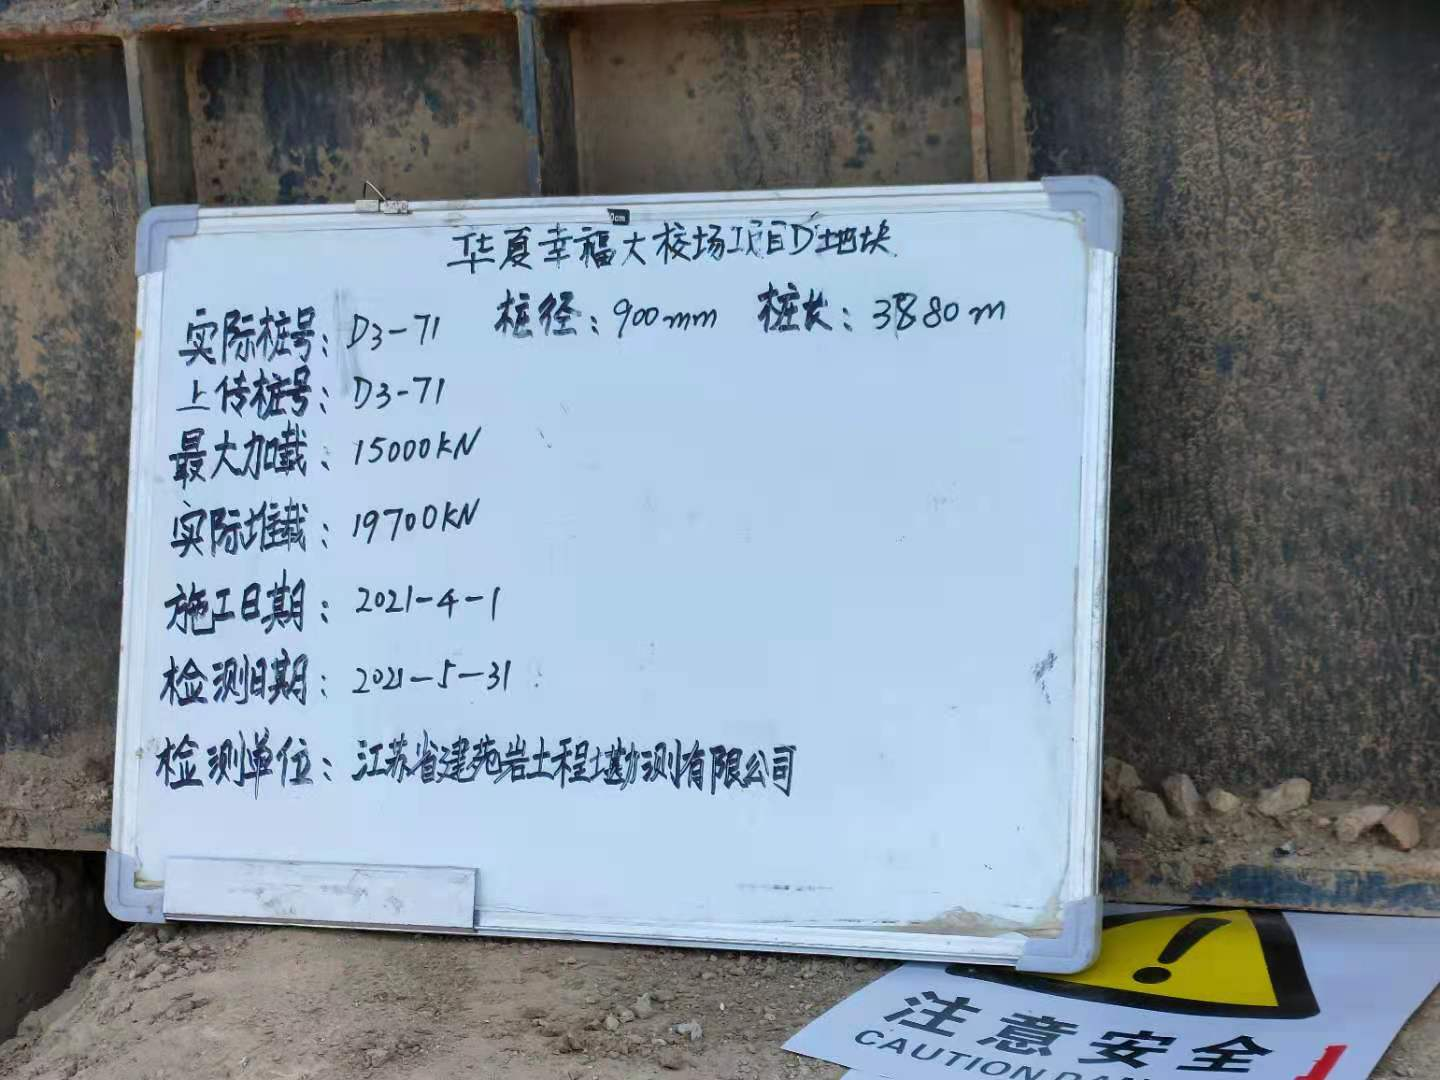 华夏幸福大校场项目D地块
实际桩号：D3-71 桩径：900mm 桩长：3880m
上传桩号：D3-71
最大加载：15000KN
实际堆载：19700KN
施工日期：2021-4-1
检测日期：2021-5-31
检测单位：江苏省建苑岩土程勘测有限公司
注意安全
CAUTION